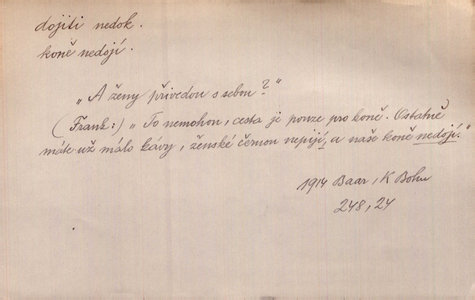 dojiti nedok.
koně nedojí.
„A ženy přivedou s sebou?"
(Frank:) „To nemohou, cesta je pouze pro koně. Ostatně
máte už málo kávy, ženské černou nepijí, a naše koně nedojí."
1914 Baar, K Bohu
248, 24